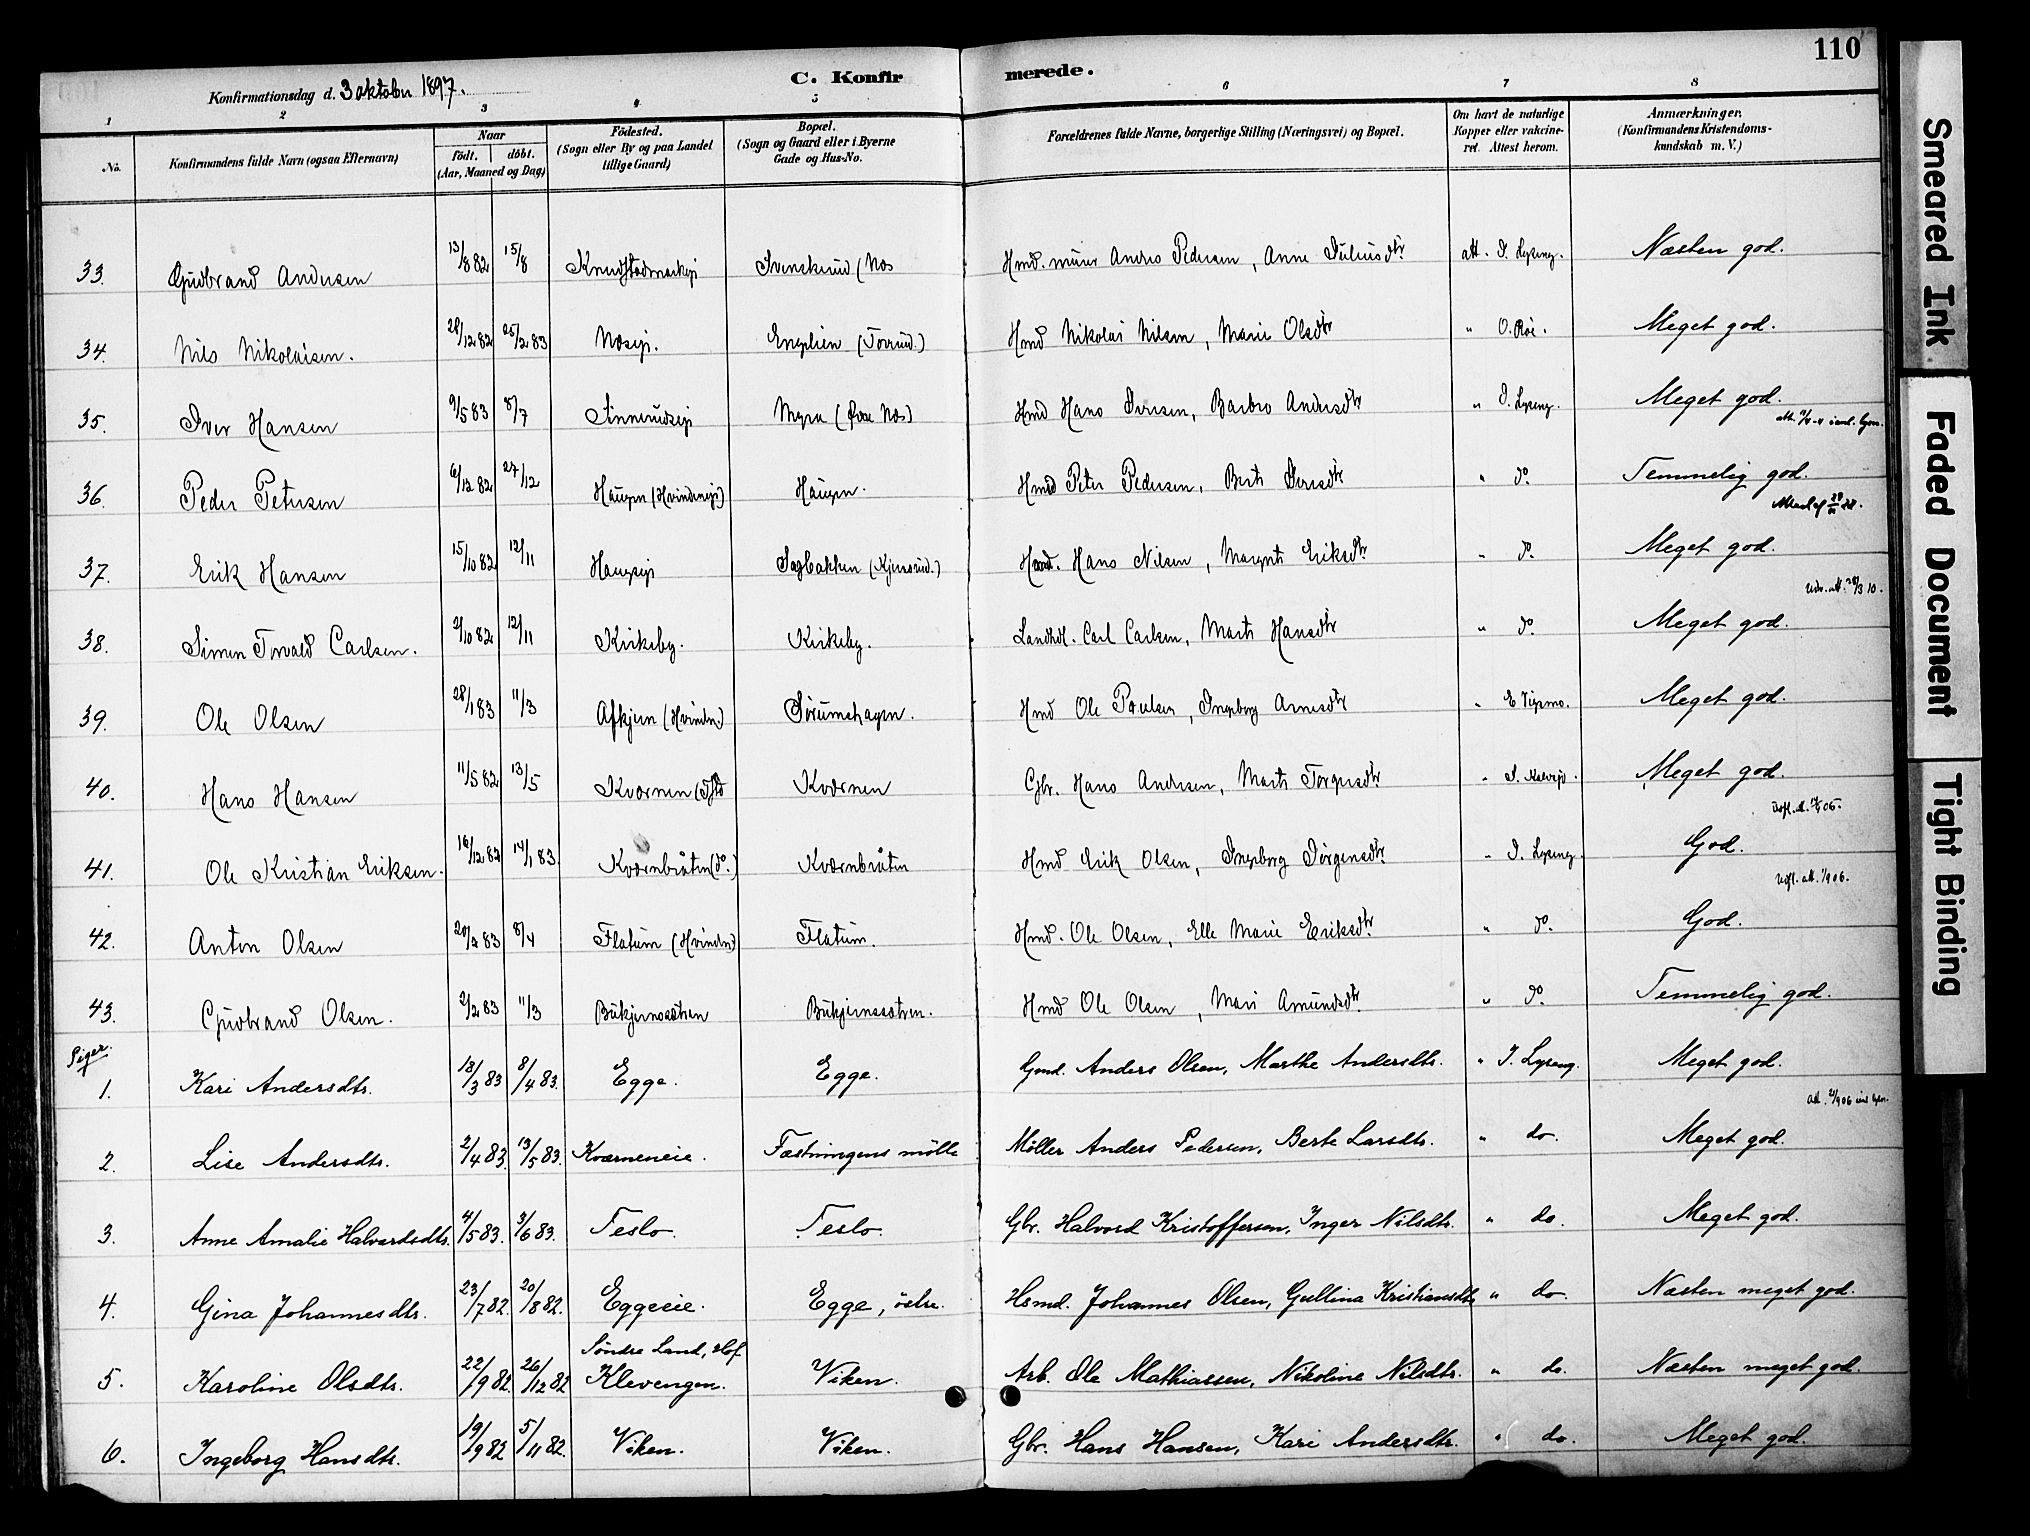 110
Konfirmationsdag d. 3 oktober 1897.
C. Konfirmerede.
1 2 3 4 5 6 7 8
No. Konfirmandens fulde Navn (ogsaa Efternavn) Naar födt. döbt. (Aar, Maaned og Dag) Födested. (Sogn eller By og paa Landet tillige Gaard) Bopæl. (Sogn og Gaard eller i Byerne Gade og Hus-No. Forældrenes fulde Navne, borgerlige Stilling (Næringsvei) og Bopæl. Om havt de naturlige Kopper eller vakcineret. Attest herom. Anmærkninger. (Konfirmandens Kristendomskundskab m. V.)
33. Gudbrand Andersen 13/8 82 15/8 Knudstadmarkeje Svenskerud (Næs Hmd. murer Andres Pedersen, Anne Juliusdtr att. I. Lyseng. Næsten god.
34. Nils Nikolaisen. 28/12 82 25/2 83 Næseje. Englien (Torrud.) Hmd Nikolai Nilsen, Marie Olsdtr " O. Röe. Meget god.
35. Iver Hansen 9/5 83 8/7 Sinnerudseje Myra (Øvre Næs) Hmd Hans Iversen, Barbro Andersdtr " I. Lyseng. Meget god.
36. Peder Petersen 6/12 82 27/12 Haugen (Hvindeneje) Haugen. Hmd Peter Pedersen, Berte Iversdtr " do. Temmelig god.
37. Erik Hansen 15/10 82 12/11 Haugseje Sagbakken (Kjensrud.) Hmd. Hans Nilsen, Margrete Eriksdtr " do. Meget god.
38. Simen Torvald Carlsen. 2/10 82 12/11 Kirkeby. Kirkeby. Landhdl. Carl Carlsen, Marte Hansdtr " do. Meget god.
39. Ole Olsen 28/1 83 11/3 Afkjern (Hvinden) Sörumshagen. Hmd Ole Paulsen, Ingeborg Arnesdtr " E Vigsmo. Meget god.
40. Hans Hansen 11/5 82 13/5 Kværnen Kværnen Gbr. Hans Andersen, Marte Torgersdtr " Meget god.
41. Ole Kristian Eriksen. 16/12 82 14/1 83. Kværnbråten (do.) Kværnbråten Hmd Erik Olsen, Ingeborg Jörgensdtr " I. Lyseng. God.
42. Anton Olsen 20/2 83 8/4 Flatum (Hvinden) Flatum. Hmd. Ole Olsen, Elle Marie Eriksdtr " do. God.
43. Gudbrand Olsen. 2/2 83 11/3 Bukjernssætren Bukjernssætren. Hmd Ole Olsen, Mari Amundsdtr " do. Temmelig god.
Piger.
1. Kari Andersdtr. 18/3 83 8/4 83. Egge. Egge. Gmd. Anders Olsen, Marthe Andersdtr. " I. Lyseng. Meget god.
2. Lise Andersdtr. 2/4 83. 13/5 83. Kværneneie. Fæstningens mölle Möller Anders Pedersen, Berte Larsdtr. " do. Meget god.
3. Anne Amalie Halvardsdtr. 4/5 83. 3/6 83. Teslo. Teslo. Gbr. Halvord Kristoffersen, Inger Nilsdtr. " do. Meget god.
4. Gina Johannesdtr. 23/7 82. 20/8 82. Eggeeie. Egge, övre. Hsmd. Johannes Olsen, Gullina Kristiansdtr. " do. Næsten meget god.
5. Karoline Olsdtr. 22/9 82. 26/12 82 Söndre Land, Hof Klevengen. Viken. Arb. Ole Mathiassen, Nikoline Nilsdtr. " do. Næsten meget god.
6. Ingeborg Hansdtr. 19/9 82 5/11 82. Viken. Viken. Gbr. Hans Hansen, Kari Andersdtr. " do. Meget god.
Smeared Ink
Faded Document
Tight Binding